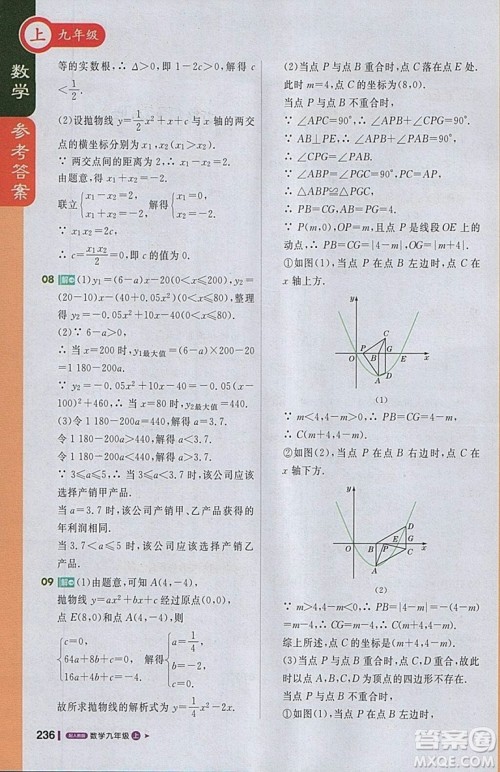 上 九年级
数学
参考答案
等的实数根,∴ Δ>0,即 1-2c>0,解得 c
<1/2.
(2)设抛物线 y=1/2x²+x+c 与 x 轴的两交
点的横坐标分别为 x₁,x₂(x₁>x₂).
∵ 两交点间的距离为 2,∴ x₁-x₂=2.
由题意,得 x₁+x₂=-2.
联立{x₁-x₂=2,x₁+x₂=-2,解得{x₁=0,x₂=-2.
∴ c=x₁x₂/2=0,即 c 的值为 0.
08 解 (1)y₁=(6-a)x-20(0<x≤200),y₂
=20x-10x-40-0.05x²(0<x≤200),整理
得 y₂=-0.05x²+10x-40(0<x≤200).
(2)∵ 6-a>0,
∴ 当 x=200 时,y₁最大值=(6-a)×200-20=
1 180-200a.
∵ y₂=-0.05x²+10x-40=-0.05(x-100)²+460,
∴ 当 x=100 时,y₂最大值=440.
令 1 180-200a>440,解得 a<3.7.
令 1 180-200a=440,解得 a=3.7.
令 1 180-200a<440,解得 a>3.7.
∵ 3≤a≤5,∴ 当 3≤a<3.7 时,该公司应选
择产销甲产品.
当 a=3.7 时,该公司产销甲、乙产品所获得
的年利润相同.
当 3.7<a≤5 时,该公司应选择产销乙产品.
09 解 (1)由题意,可知 A(4,-4),
抛物线 y=ax²+bx+c 经过原点(0,0)、
点 E(8,0)和点 A(4,-4),
则{c=0,64a+8b+c=0,16a+4b+c=-4,解得{a=1/4,b=-2,c=0.
故所求抛物线的解析式为 y=1/4x²-2x.
(2)当点 P 与点 B 重合时,点 C 落在点 E 处.
此时 m=4,点 C 的坐标为(8,0).
当点 P 与点 B 不重合时,
∵ ∠APC=90°,∴ ∠APB+∠CPG=90°.
∵ AB⊥PE,∴ ∠APB+∠PAB=90°,
∴ ∠CPG=∠PAB.
∵ ∠ABP=∠PGC=90°,PA=PC,
∴ △ABP≌△PGC,
∴ PB=CG,AB=PG=4.
∵ P(m,0),A(4,-4),且点 P 是线段 OE 上的
动点,∴ PB=CG=|4-m|,OG=|m+4|.
①如图(1),当点 P 在点 B 左边时,点 C 在
x 轴上方.
y
x
O
P
B
G
C
A
D
(1)
∵ m<4,4-m>0,∴ PB=CG=4-m,
∴ C(m+4,4-m).
②如图(2),当点 P 在点 B 右边时,点 C 在
x 轴下方.
y
x
O
B
P
E
G
D
C
A
(2)
∵ m>4,4-m<0,∴ PB=CG=|4-m|=-(4-m)
=m-4,∴ CG=m-4,∴ C(m+4,4-m).
综上所述,点 C 的坐标是(m+4,4-m).
(3)当点 P 与点 B 重合时,点 C,D 重合.
当点 P 与点 B 不重合时,点 C,D 不重合,故
无论 m 为何值,以 P,A,C,D 为顶点的四边形
236 配人教版 数学九年级 上
答案圈
MXQE.COM